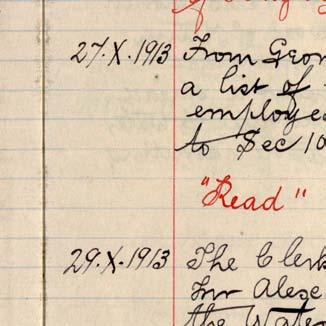 27.X.1913 From Geor
a list of
employe
to Sec 10
"Read"
29.X.1913 The Clerk
for Alex
the Wate